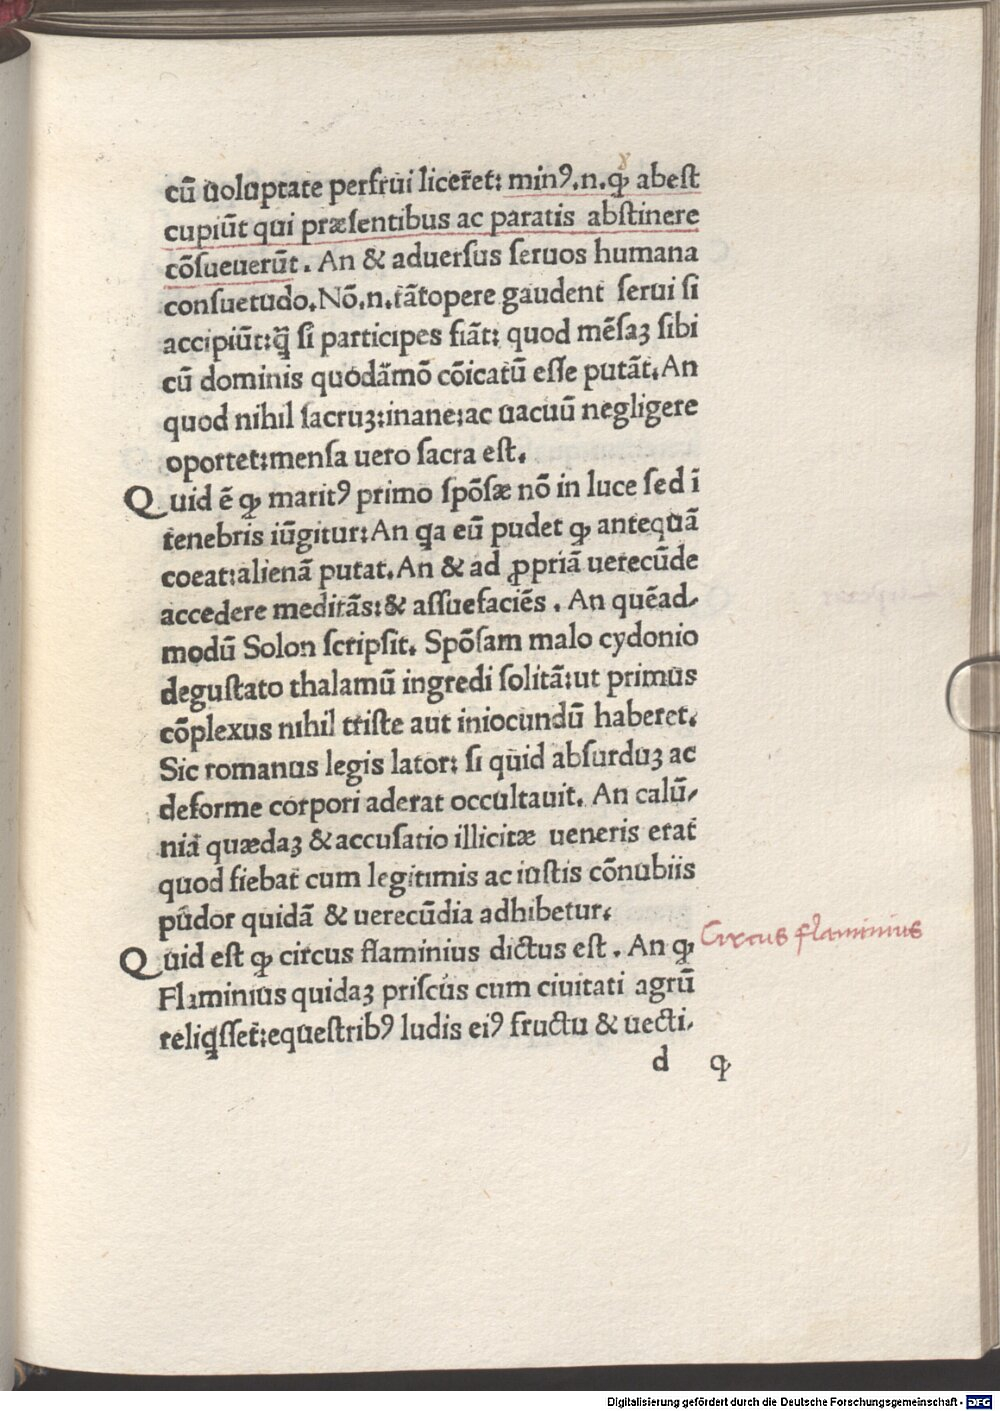 cū uoluptate perfrui liceret: minꝰ.n.ꝙ abest
cupiūt qui præsentibus ac paratis abstinere
cōsueuerūt. An & aduersus seruos humana
consuetudo. Nō.n.tātopere gaudent serui si
accipiūt: q̄ si participes fiāt: quod mēsaꝫ sibi
cū dominis quodāmō cōicatū esse putāt. An
quod nihil sacruꝫ: inane: ac uacuū negligere
oportet: mensa uero sacra est.
Quid ē ꝙ maritꝰ primo spōsæ nō in luce sed ī
tenebris iūgitur: An qa eū pudet ꝙ antequā
coeat: alienā putat. An & ad ꝓpriā uerecūde
accedere meditās: & assuefaciēs. An quēad-
modū Solon scripsit. Spōsam malo cydonio
degustato thalamū ingredi solitā: ut primus
cōplexus nihil triste aut iniocundū haberet.
Sic romanus legis lator: si quid absurduꝫ ac
deforme corpori aderat occultauit. An calū-
nia quædaꝫ & accusatio illicitæ ueneris erat
quod fiebat cum legitimis ac iustis cōnubiis
pudor quidā & uerecūdia adhibetur.
Quid est ꝙ circus flaminius dictus est. An ꝙ
Flaminius quidaꝫ priscus cum ciuitati agrū
reliqsset: equestribꝰ ludis eiꝰ fructu & uecti-
d ꝙ
Circus flaminius
Digitalisierung gefördert durch die Deutsche Forschungsgemeinschaft - DFG